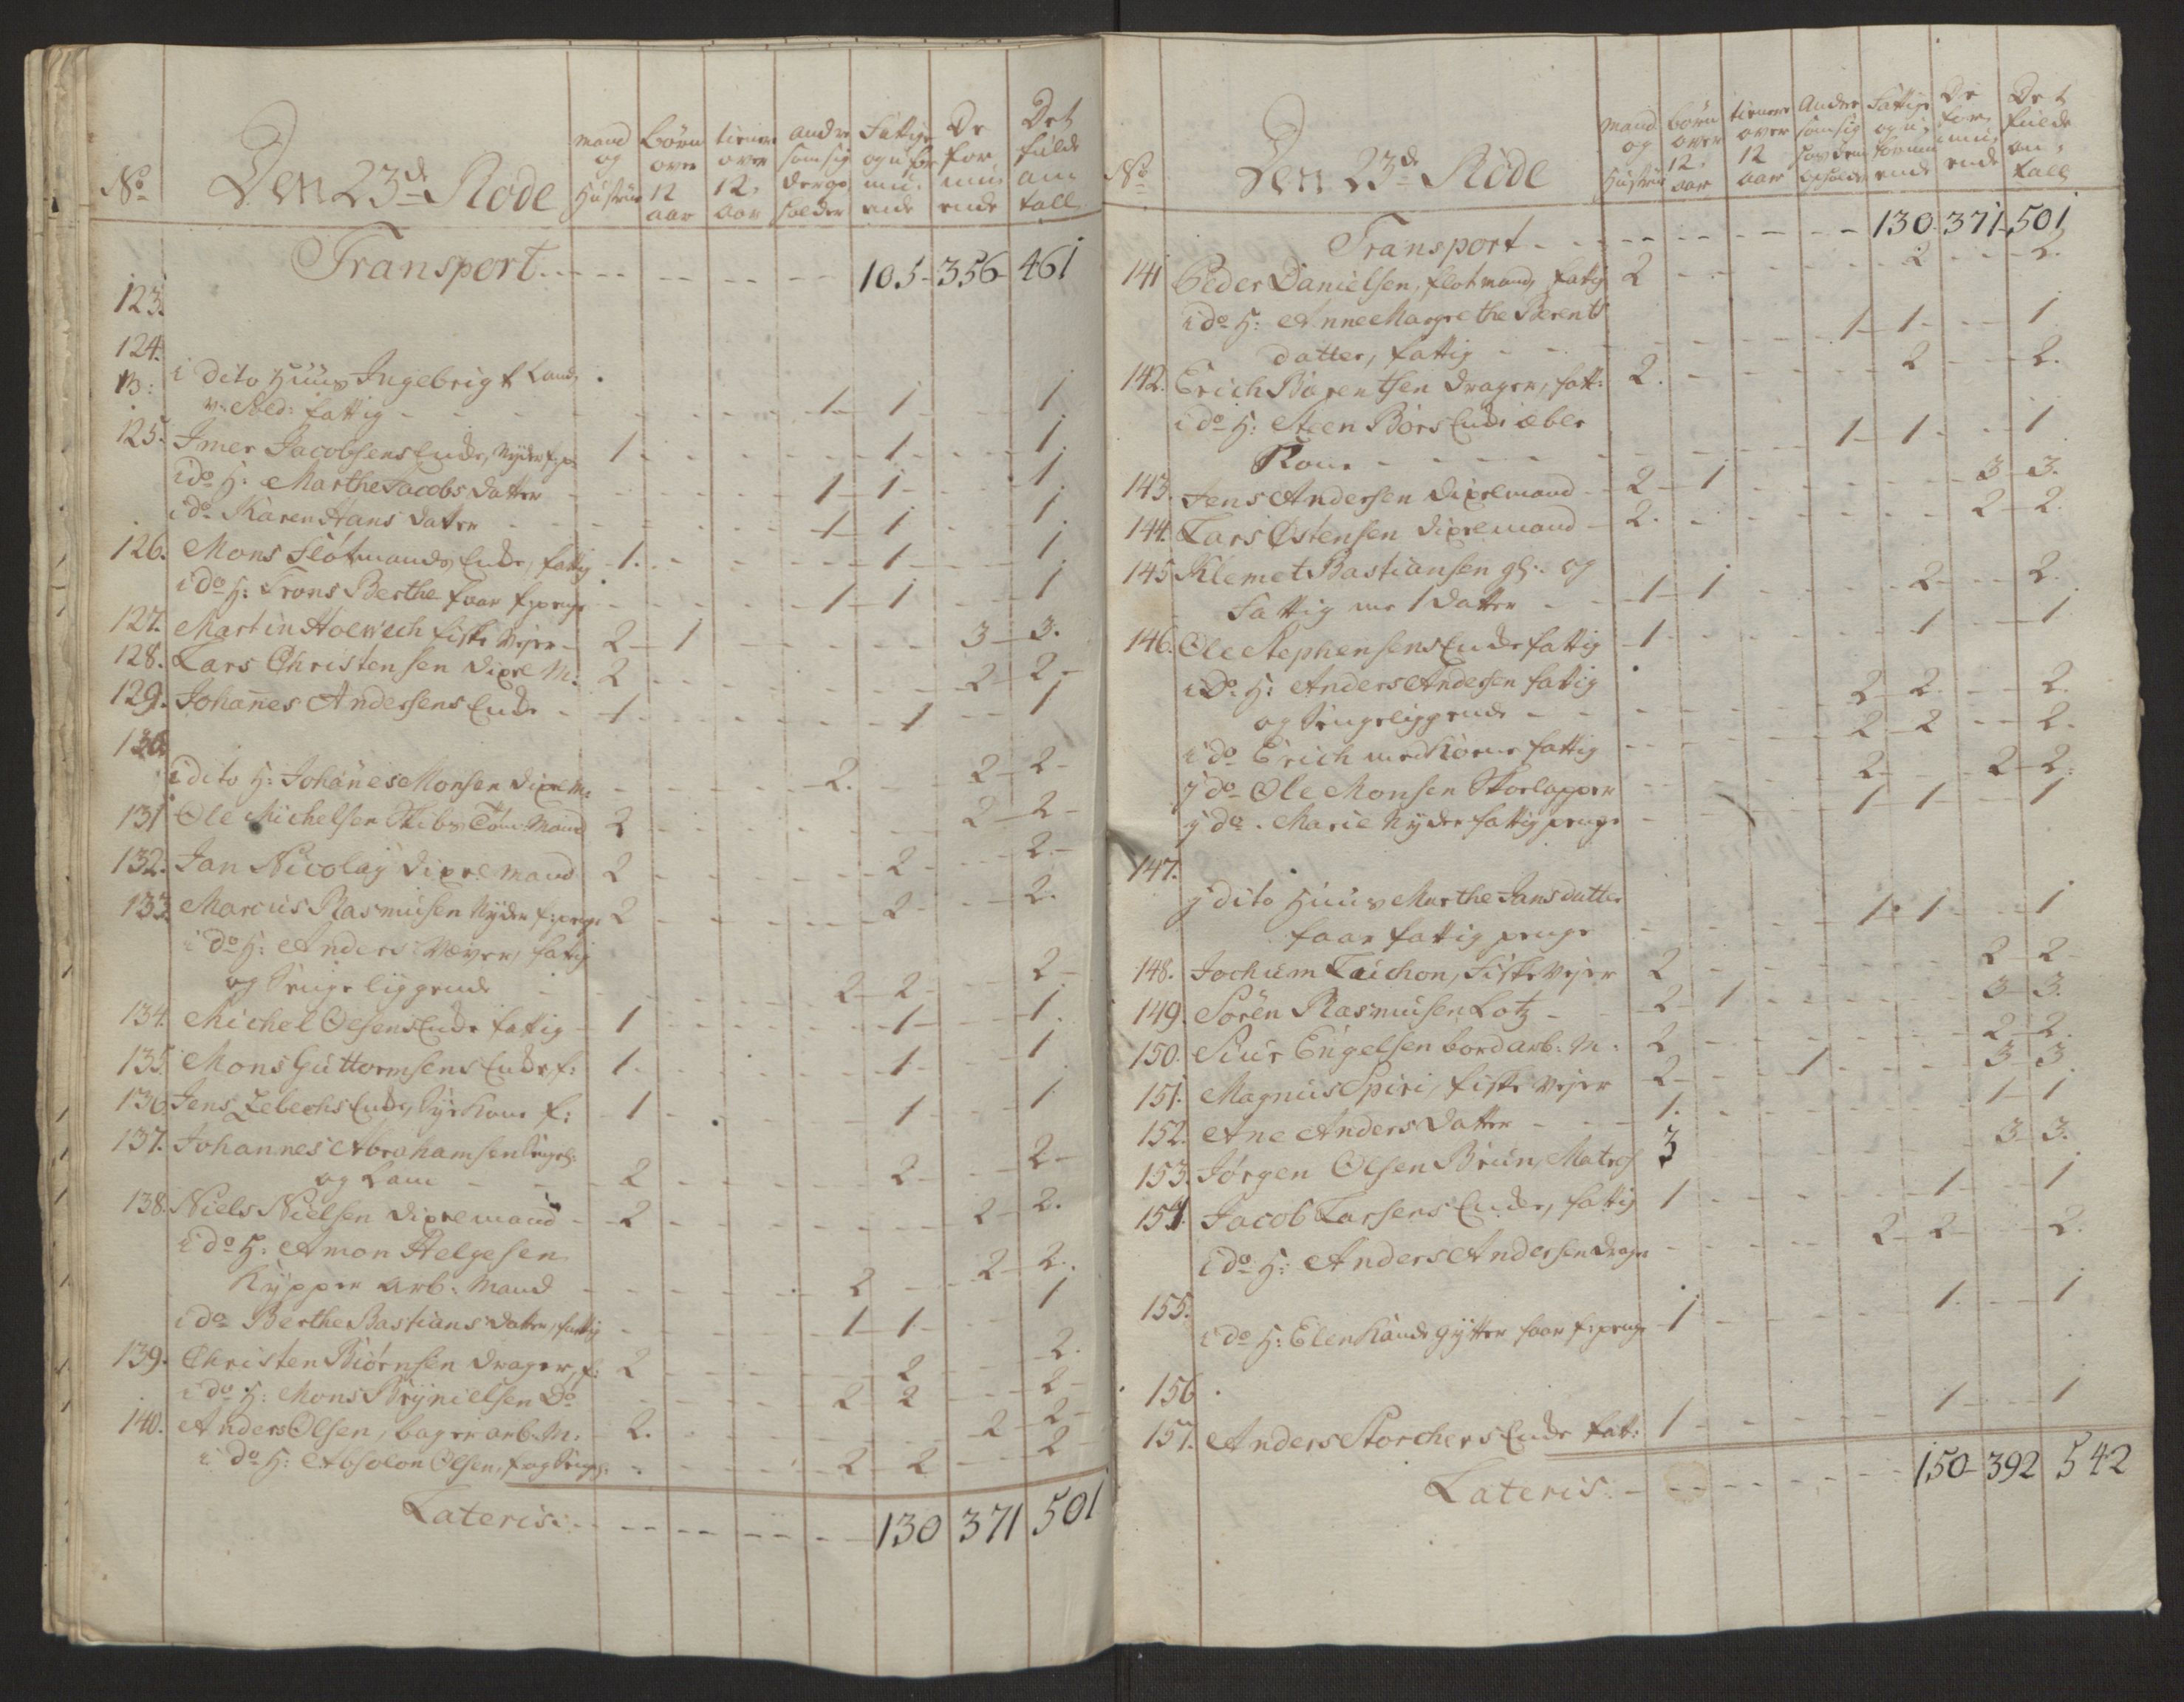 No Den 23de Rode mand og Hustrue børn over 12 aar tienere over 12 aar andre som sig Fattige og ufor mu ende De for mu ende Det fulde an tall
Transport 105 356 461
123.
124.
B: i dito Huus Ingebrigt
fattig 1 1 1
125. Imer Jacobsens Enke, Nyder 1 1 1
i do H: Marthe Jacobs datter 1 1 1
i do Karen Hans datter 1 1 1
126. Mons Flötmands Enke, fattig 1 1 1
i do H: Berthe faar f:penge 1 1 1
127. Martin Holwech fiske Vejer 2 1 3 3.
128. Lars Christensen Dixel M: 2 2 2
129. Johannes Andersens Enke 1 1 1
130.
i dito H: Johanes Monsen Dixel M: 2. 2 2
131 Ole Michelsen Skibs Tøm: Mand 2 2 2
132. Jan Nicolaÿ Dixel mand 2 2 2.
133 Marcus Rasmusen Nyder f:penge 2 2 2.
i do H: Anders Wæver, fattig
og Senge liggende 2 2 2
134. Michel Olsens Enke fattig 1 1 1.
135. Mons Guttormsens Enke f: 1 1 1
136 Jens Zebechs Enke, Syekone f: 1 1 1
137. Johannes Abrahamsen Sengel:
og Lam 2 2 2
138. Niels Nielsen Dixelmand 2 2 2.
i do H: Amon Helgesen
Kypper arb: Mand 2 2 2.
i do Berthe Bastians datter, fattig 1 1 1
139. Christen Biørnsen Drager, f: 2 2 2.
i do H: Mons Brÿnielsen Do 2 2 2
140. Anders Olsen, bager arb: M: 2. 2 2
i do H: Absolon Olsen, f: og Sengel: 2 2 2
Lateris: 130 371 501
No Den 23de Rode mand og Hustrue børn over 12. aar tienere over 12 aar Andre som sig Fattige og u formu ende De for mu ende Det fulde an tall
Transport 130 371 501
141 Peder Danielsen, flotmand, fatig 2 2 2.
i do H: Anne Margrethe Berents
datter, fattig 1 1 1
142. Erich Barentsen Drager, fatt: 2. 2 2.
i do H: Steen Børs Enke æble
Kone 1 1 1
143. Jens Andersen Dixelmand 2 1 3 3.
144. Lars Østensen Dixelmand 2. 2 2.
145 Klemet Bastiansen gl: og
Fattig me 1 Datter 1 1 2 2.
146. Ole Stephensens Enke fattig 1 1 1
i Do H: Anders Andersen fattig
og Sengeliggende 2 2 2.
i do Erich med Kone fattig 2 2 2.
i do Ole Monsen Skoelapper 2 2 2.
i do Marie Nyder fattig penge 1 1 1
147.
i dito Huus Marthe Jansdatter
faar fattig penge 1 1 1
148. Jochum Taichon, Fiske Vejer 2 2 2
149. Sören Rasmusen Lotz 2 1 3 3.
150. Siur Engelsen bord arb: M: 2 2 2.
151. Magnus Spiri, fiske Vejer 2 1 3 3.
152. Ane Anders Datter 1. 1 1
153. Jørgen Olsen Brun, Matros 3 3 3.
154. Jacob Larsens Enke, fattig 1 1 1
i do H: Anders Andersen Drager 2 2 2.
155.
i do H: Elen Kandegÿtter faar f:penge 1 1. 1
156.
157. Anders Storchers Enke fat: 1 1 1
Lateris: 150 392 542